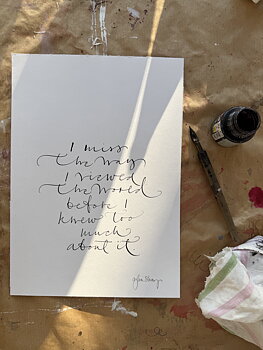 I miss
the way
I viewed
the world
before I
knew too
much
about it